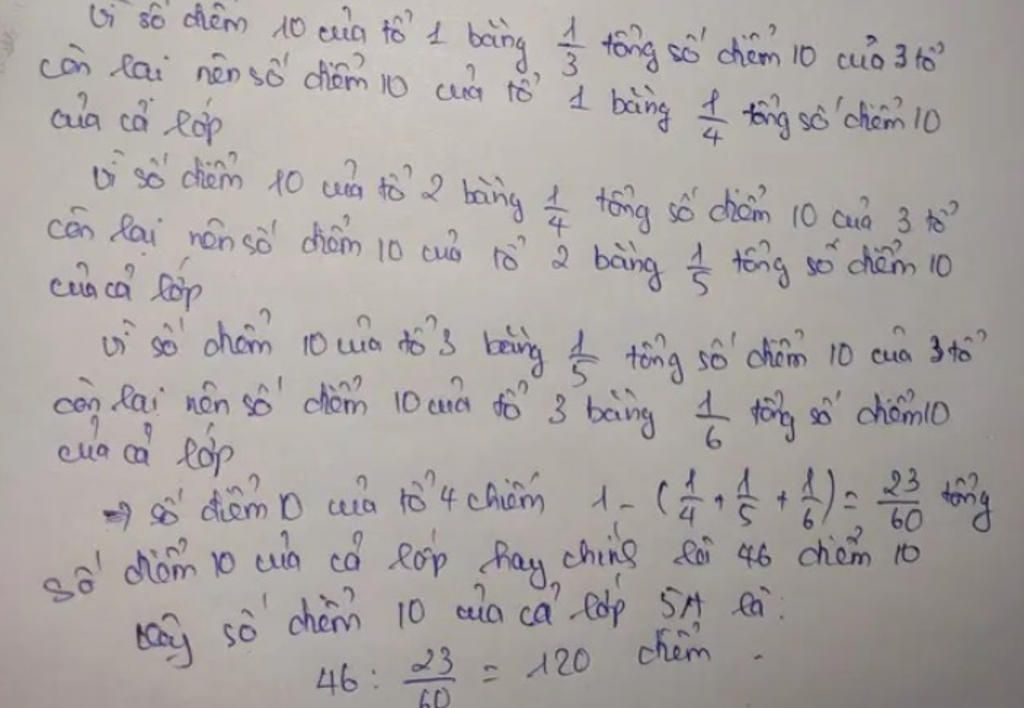 Vì số điểm 10 của tổ 1 bằng 1/3 tổng số điểm 10 của 3 tổ
còn lại nên số điểm 10 của tổ 1 bằng 1/4 tổng số điểm 10
của cả lớp
Vì số điểm 10 của tổ 2 bằng 1/4 tổng số điểm 10 của 3 tổ
còn lại nên số điểm 10 của tổ 2 bằng 1/5 tổng số điểm 10
của cả lớp
Vì số điểm 10 của tổ 3 bằng 1/5 tổng số điểm 10 của 3 tổ
còn lại nên số điểm 10 của tổ 3 bằng 1/6 tổng số điểm 10
của cả lớp
→ số điểm 10 của tổ 4 chiếm 1 - (1/4 + 1/5 + 1/6) = 23/60 tổng
số điểm 10 của cả lớp hay chính là 46 điểm 10
Vậy số điểm 10 của cả lớp 5A là:
46 : 23/60 = 120 điểm.